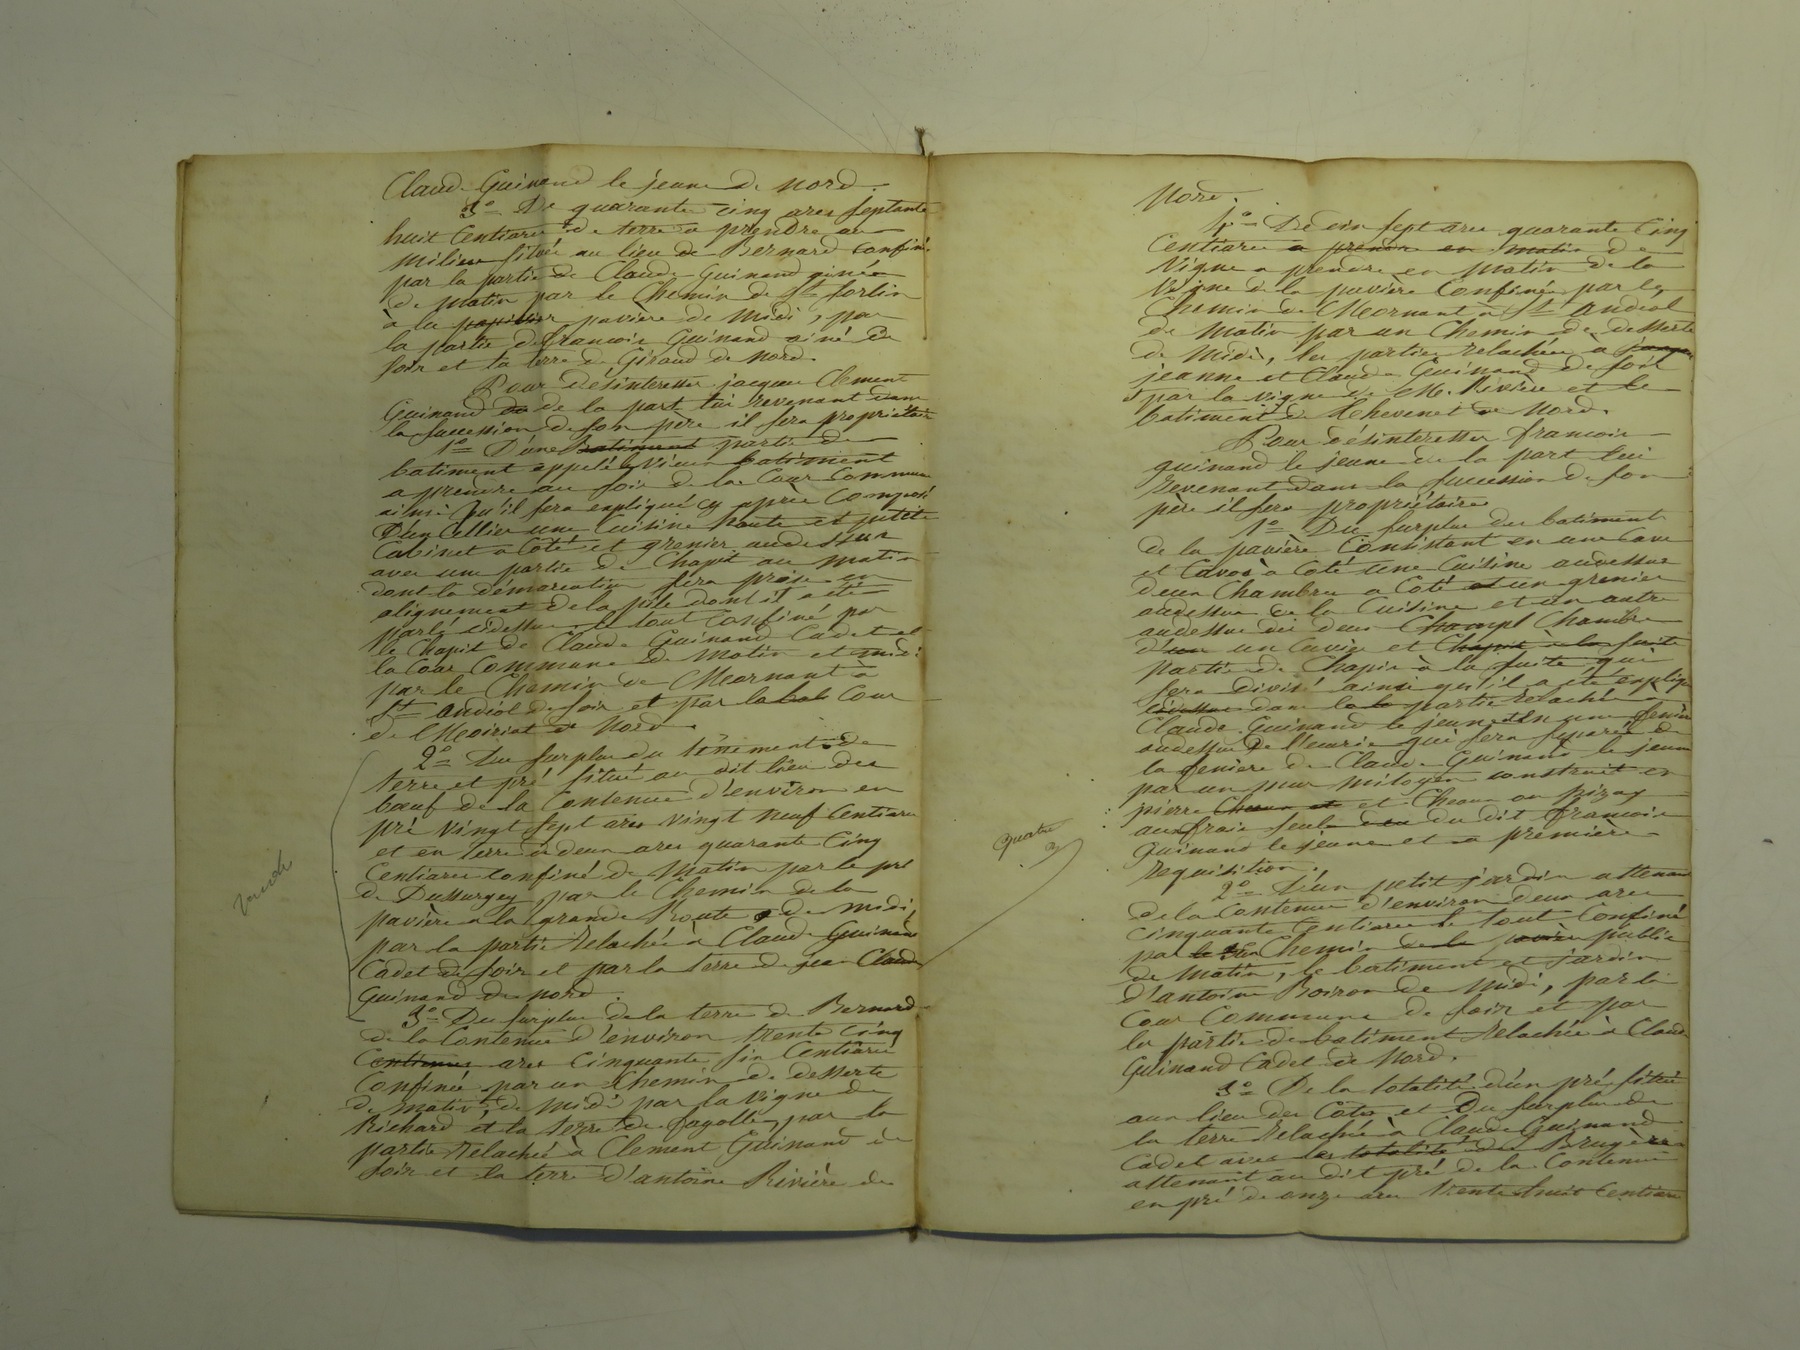 Claude Guinand le jeune de nord.
3° De quarante cinq ares septante
huit Centiares de terre a prendre au
milieu située au lieu de Bernard Confiné
par la partie de Claude Guinand ainé
de matin par le Chemin de St Sorlin
à la pavière de midi, par
la partie de francois Guinand ainé de
soir et la terre de Giraud de nord.
Pour désinteresser jacques Clement
Guinand de la part lui revenant dans
la succession de son père il sera propriétaire
1° D'une Batiment partie de
batiment appelé le Vieux batiment
a prendre au soir de la Cour Commune
ainsi qu'il sera expliqué cy après Composé
D'un Cellier une Cuisine haute et petite
Cabinet a Coté et grenier audessus
avec une partie de Chapit au matin
dont la démarcation sera prise en
alignement de la pile dont il a été
parlé cidessus le tout Confiné par
le Chapit de Claude Guinand Cadet et
la Cour Commune de matin et midi
par le Chemin de Mornant à
St andéol de soir et par la Cour
de Moiriat de Nord.
2° Du surplus du tènement de
terre et pré situé au dit lieu des
bœuf de la Contenue d'environ en
pré vingt sept ares vingt neuf Centiares
et en terre deux ares quarante Cinq
Centiares Confiné de Matin par le pré
de Dussurgey par le Chemin de la
pavière a la grande Route de midi,
par la partie Relachée à Claude Guinand
Cadet de soir et par la terre de jean Claude
Guinand de nord.
3° Du surplus de la terre de Bernard
de la Contenue d'environ trente Cinq
Centiares ares Cinquante six Centiares
Confinée par un Chemin de desserte
de matin, de midi par la vigne de
Richard et la terre de fayolle, par la
partie Relachée à Clement Guinand de
soir et la terre d'antoine Rivière de
Vendu
Nord.
4° De dix sept ares quarante Cinq
Centiares a prendre en matin de
Vigne a prendre en matin de la
Vigne de la pavière Confinée par le
Chemin de Mornant à St andéol
de matin par un Chemin de desserte
de midi, les parties relachées à
jeanne et Claude Guinand de soir
par la vigne de M. Rivière et le
batiment de Thevenet de Nord.
Pour désinteresser francois
guinand le jeune de la part lui
revenant dans la succession de son
père il sera propriétaire
1° Du surplus des batiments
de la pavière Consistant en une Cave
et Cavos à Coté une Cuisine audessus
deux Chambres a Coté et un grenier
audessus de la Cuisine et un autre
audessus des deux Champt Chambres
d'un un Cuvier et Chapit à la suite
partie de Chapit à la suite qui
sera divisé ainsi qu'il a été expliqué
cidessus dans la partie relachée
Claude Guinand le jeune et un fenière
audessus de l'écurie qui sera separée de
la fenière de Claude Guinand le jeune
par un mur mitoyen construit en
pierre Chaux et et Chaux ou pizay
aux frais seuls du dit francois
Guinand le jeune et a première
Requisition.
quatre
2° D'un petit jardin attenant
de la Contenue d'environ deux ares
cinquante Centiares le tout Confiné
par le Chemin de la pavière public
de matin, le batiment et jardin
d'antoine Boiron de midi, par la
Cour Commune de soir et par
la partie de batiment Relachée a Claude
Guinand Cadet de Nord.
3° De la totalité d'un pré situé
aux lieu des Cotes et Du surplus de
la terre Relachée à Claude Guinand
Cadet avec la totalité des Bruyères
attenant au dit pré de la Contenue
en pré de onze ares trente huit Centiares